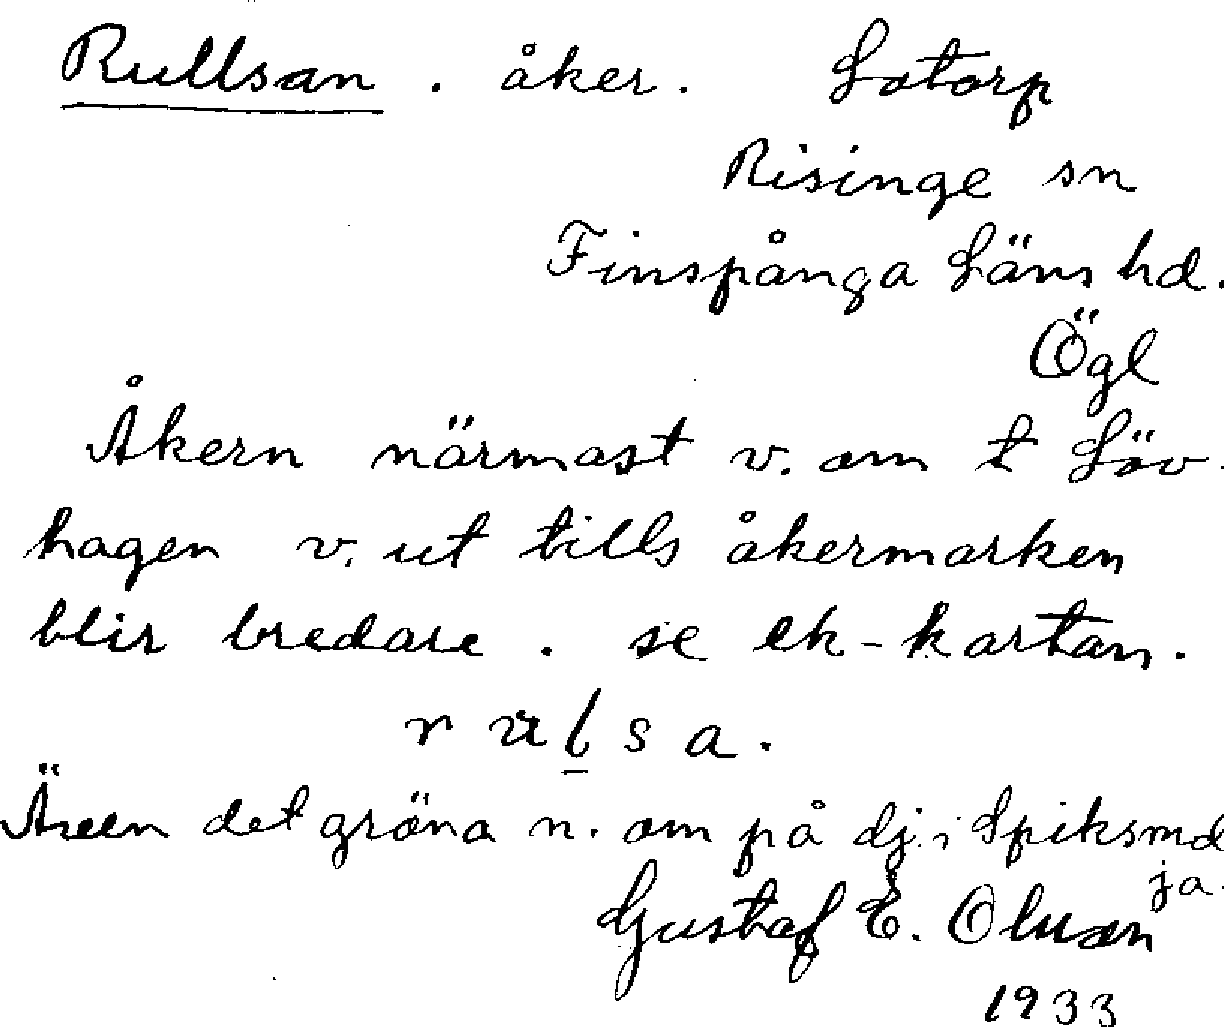 Rullsan . åker. Lotorp
Risinge sn
Finspånga Läns hd.
Ögl
Åkern närmast v. om t Löv-
hagen v. ut tills åkermarken
blir bredare . se ek-kartan.
r u l s a .
Även det gröna n. om på dj. i Spiksmd
ja.
Gustaf E. Olsson
1933